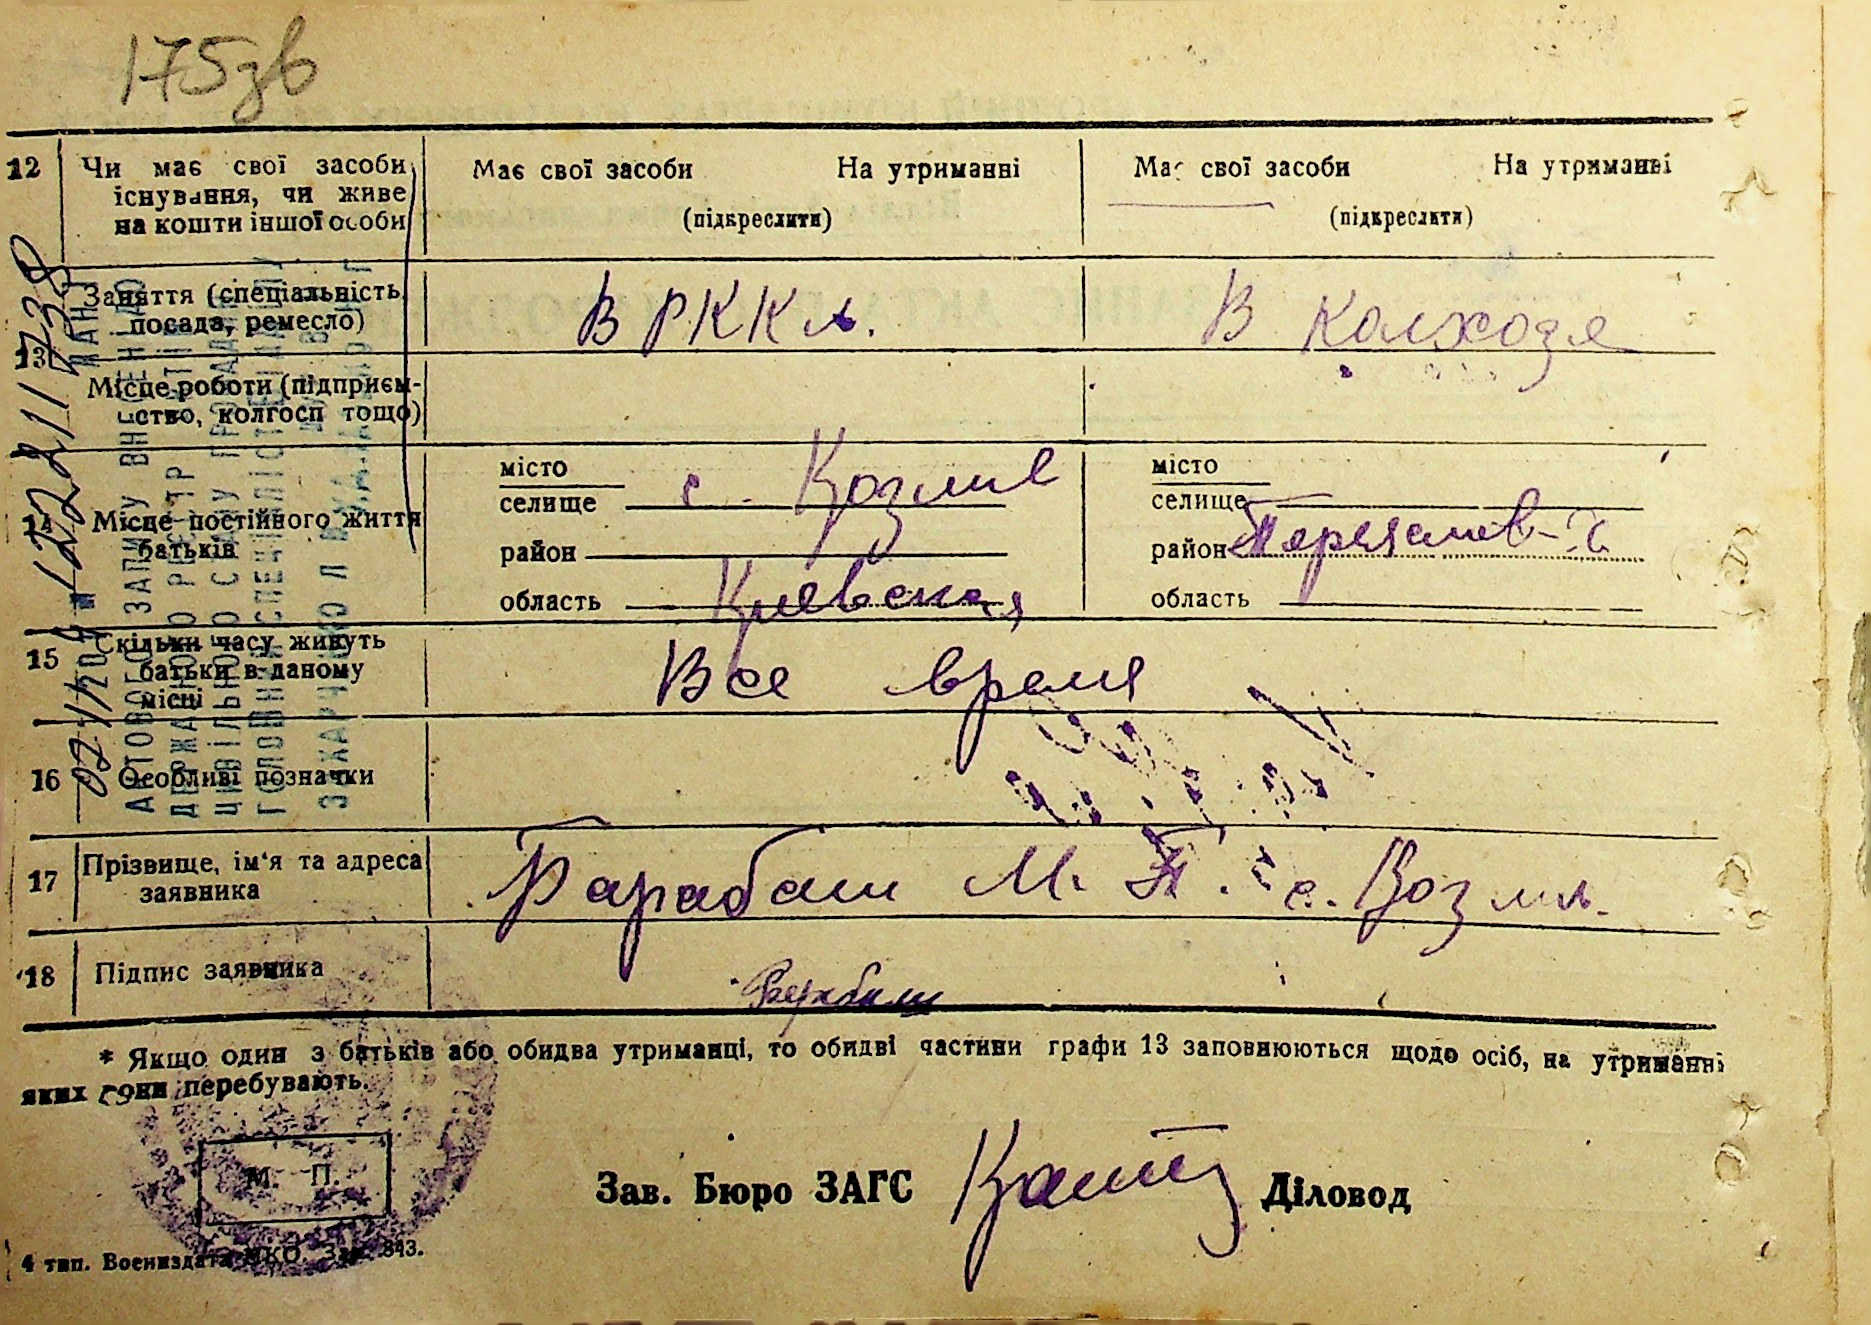 175зв
12 Чи має свої засоби існування, чи живе на кошти іншої особи
Має свої засоби На утриманні
(підкреслити)
Має свої засоби На утриманні
(підкреслити)
13 Заняття (спеціальність, посада, ремесло)
В РККА.
В колхозе
Місце роботи (підприємство, колгосп тощо)
14 Місце постійного життя батьків
місто
селище с. Козлив
район
область Киевская
місто
селище
район Переяслав-Х
область
15 Скільки часу живуть батьки в даному місці
Все время
16 Особливі позначки
17 Прізвище, ім'я та адреса заявника
Барабаш М. П. с. Козли.
18 Підпис заявника
Барабаш
* Якщо один з батьків або обидва утриманці, то обидві частини графи 13 заповнюються щодо осіб, на утриманні
яких вони перебувають.
М. П.
Зав. Бюро ЗАГС Діловод
4 тип. Воениздата НКО. Зак. 343.
АКТОВОГО ЗАПИСУ ВНЕСЕНІ ДО
ДЕРЖАВНОГО РЕЄСТР